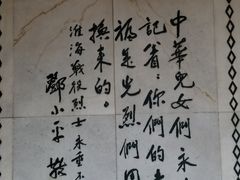 中華兒女們永
記着：你們的
福是先烈們用
換來的。
淮海戰役烈士永垂不
鄧小平 敬